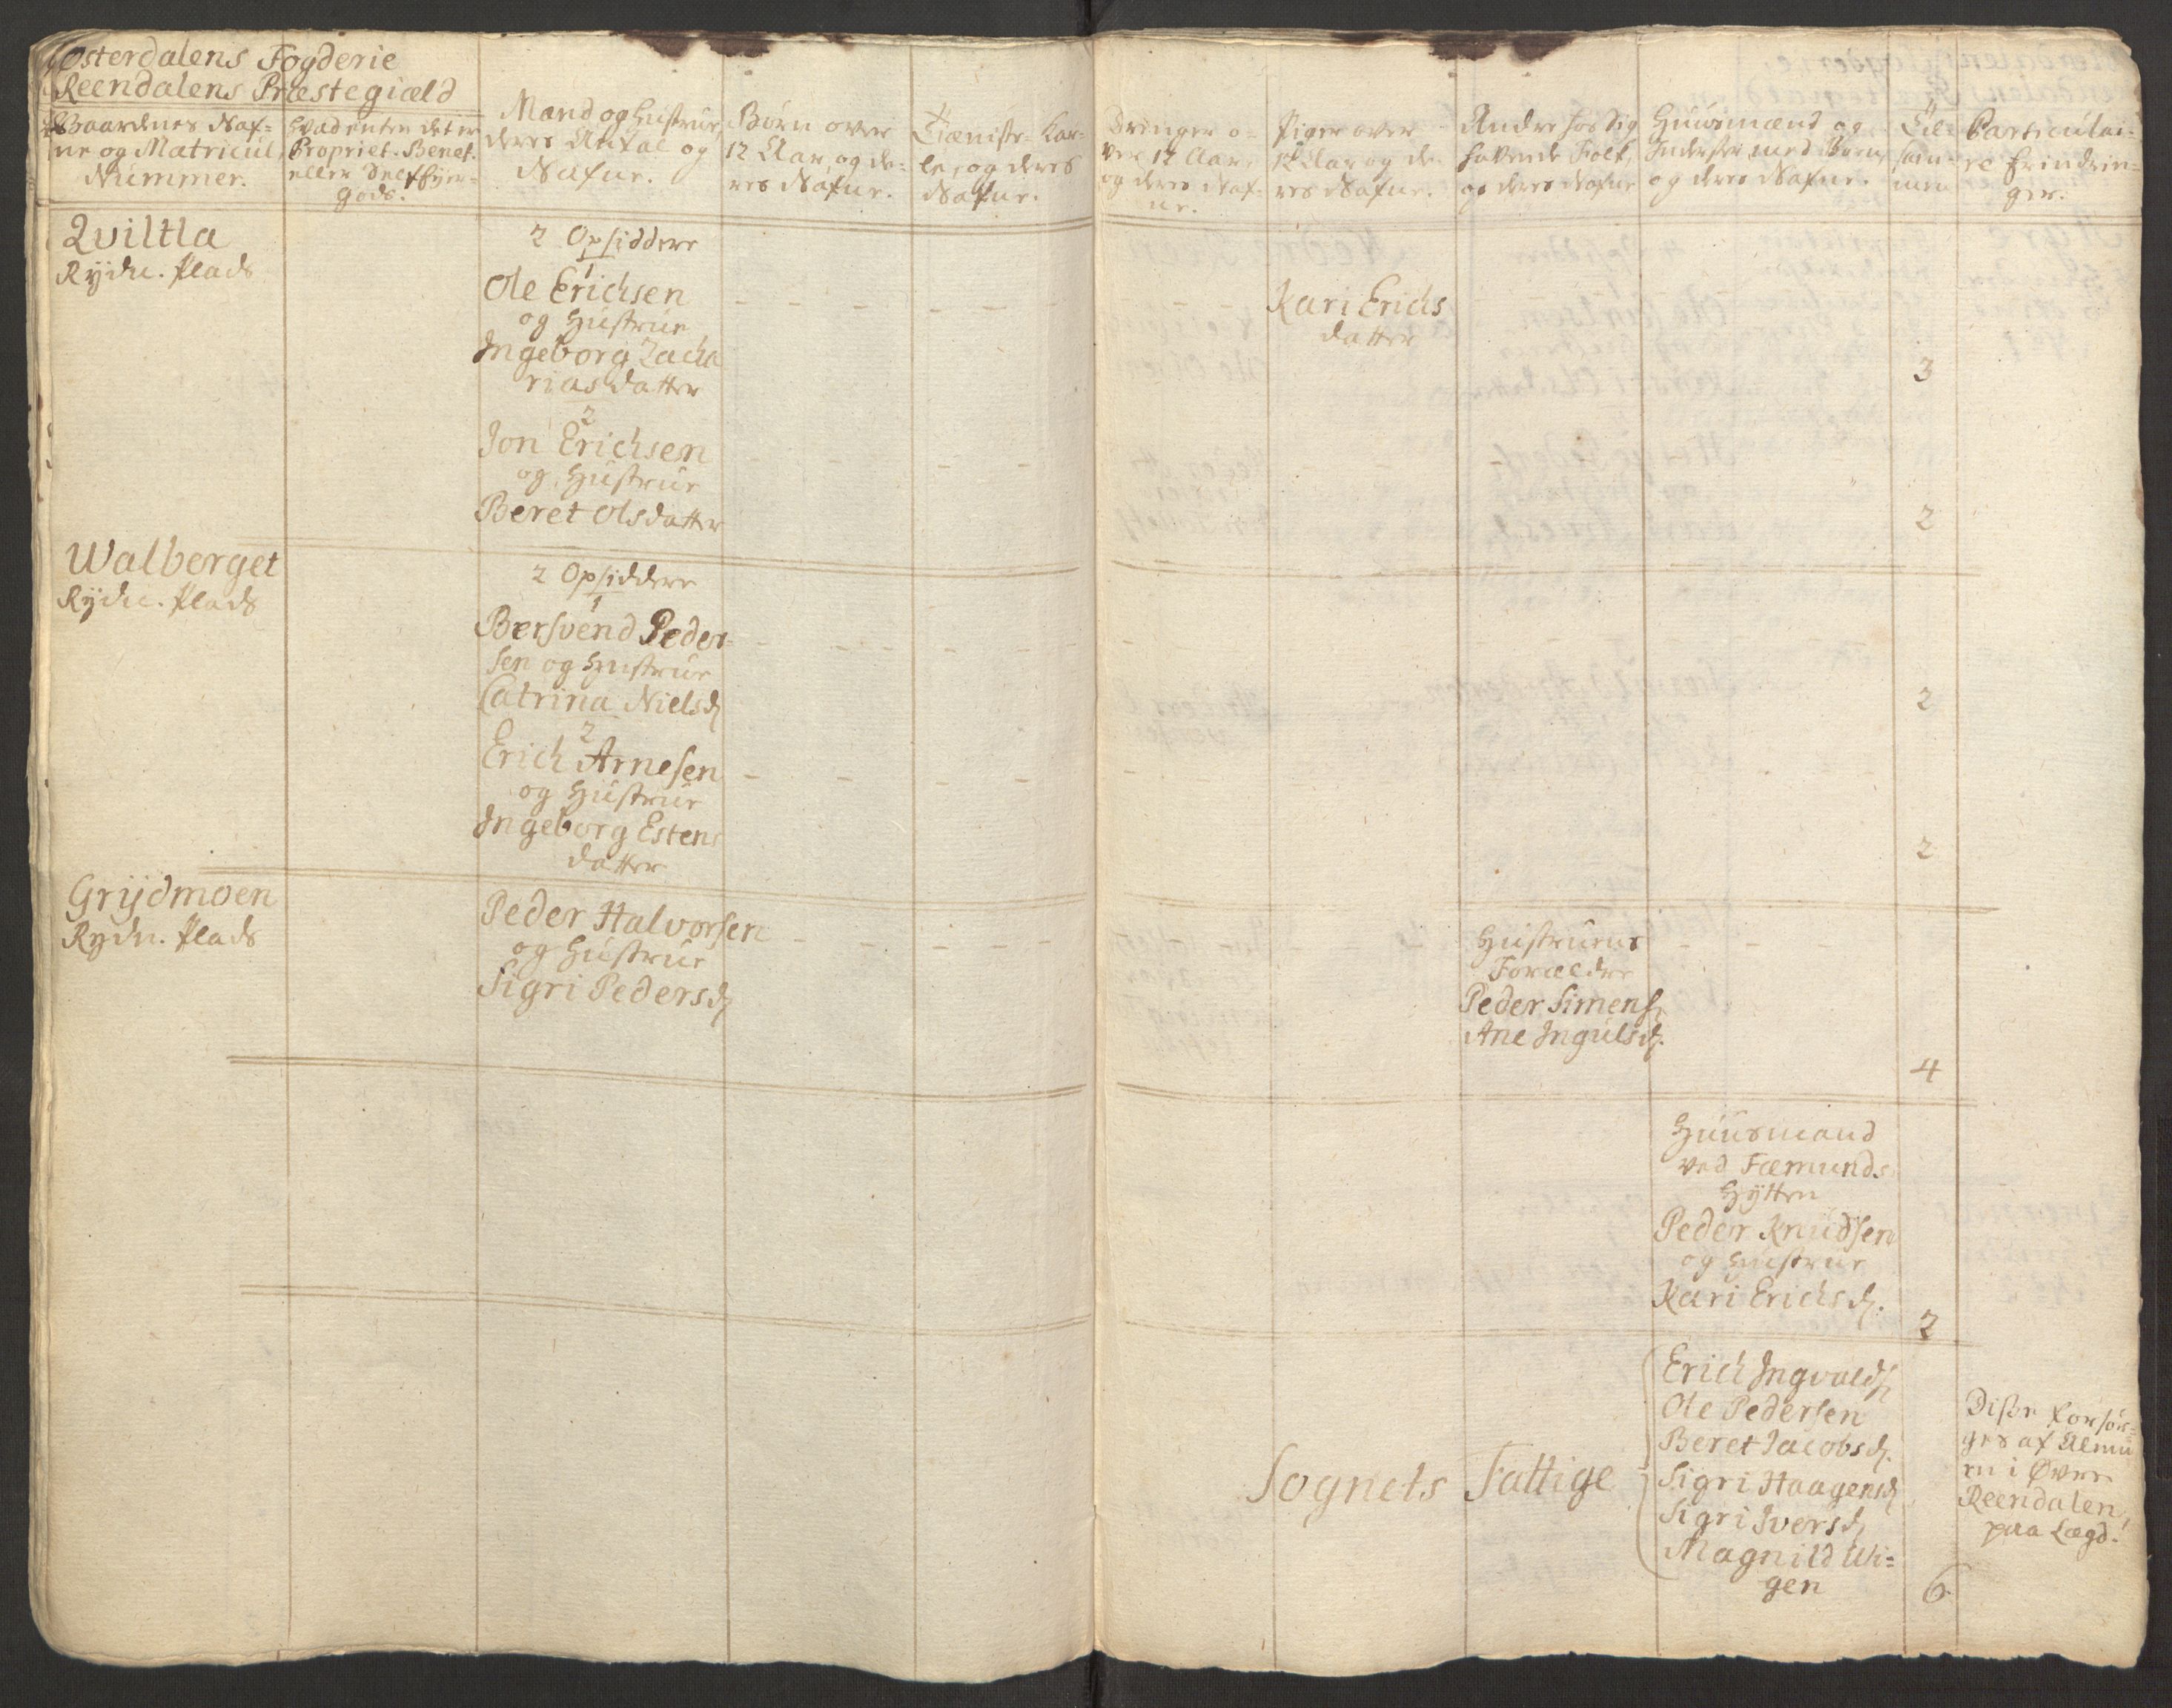 Østerdalens Fogderie
Reendalens Præstegiæld
Gaardenes Naf-
ne og Matricul
Nummer.
Hvad enten det er
Propriet. Benef.
eller Selfeyer-
gods.
Mand og Hustrue,
deres Antal og
Nafne.
Børn over
12 Aar, og de-
res Nafne.
Tieniste-Kar-
le, og deres
Nafne.
Drenger o-
ver 12 Aar,
og deres Naf-
ne.
Piger over
12 Aar og de-
res Nafne.
Andre hos sig
havende Folk,
og deres Nafne
Huusmænd og
Inderster med Børn,
og deres Nafne.
Til-
sam-
men
Particulai-
re Erindrin-
ger.
Qviltla
Rydn. Plads
2 Opsiddere
1
Ole Erichsen
og Hustrue
Ingeborg Zacha
rias datter
Kari Erichs
datter
3
2
Jon Erichsen
og Hustrue
Beret Olsdatter
2
Walberget
Rydn. Plads
2 Opsiddere
1
Bersvend Peder-
sen og Hustrue
Catrina Nielsd.
2
2
Erich Arnesen
og Hustrue
Ingeborg Estens
datter
2
Grydmoen
Rydn. Plads
Peder Halvorsen
og Hustrue
Sigri Pedersd.
Hustruens
Forældre
Peder Simens.
Ane Ingulsd.
4
Huusmand
ved Fæmunds
Hytten
Peder Knudsen
og Hustrue
Kari Erichsd.
2
Sognets Fattige
Erich Ingvalds.
Ole Pedersen
Beret Jacobsd.
Sigri Haagensd.
Sigri Iversd.
Magnild Wi-
gen
6
Disse forsør-
ges af Almu
en i Øvre
Reendalen,
paa Lægd.